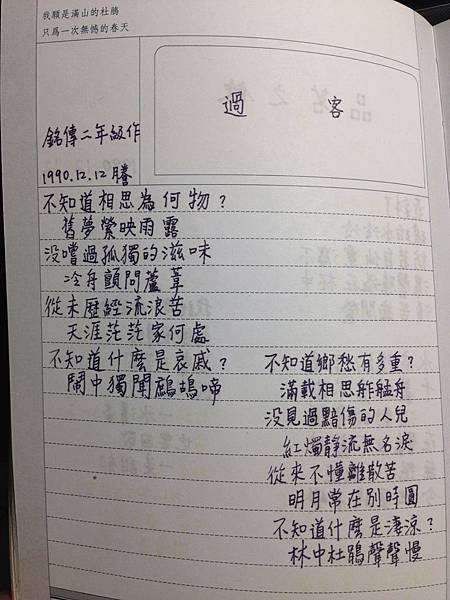 我願是滿山的杜鵑
只為一次無憾的春天
過客
銘傳二年級作
1990.12.12謄
不知道相思為何物？
舊夢縈映雨露
沒嚐過孤獨的滋味
冷舟顫問蘆葦
從未歷經流浪苦
天涯茫茫家何處
不知道什麼是哀戚？
鬧中獨聞鷓鴣啼
不知道鄉愁有多重？
滿載相思舴艋舟
沒見過黯傷的人兒
紅燭靜流無名淚
從來不懂離散苦
明月常在別時圓
不知道什麼是淒涼？
林中杜鵑聲聲慢